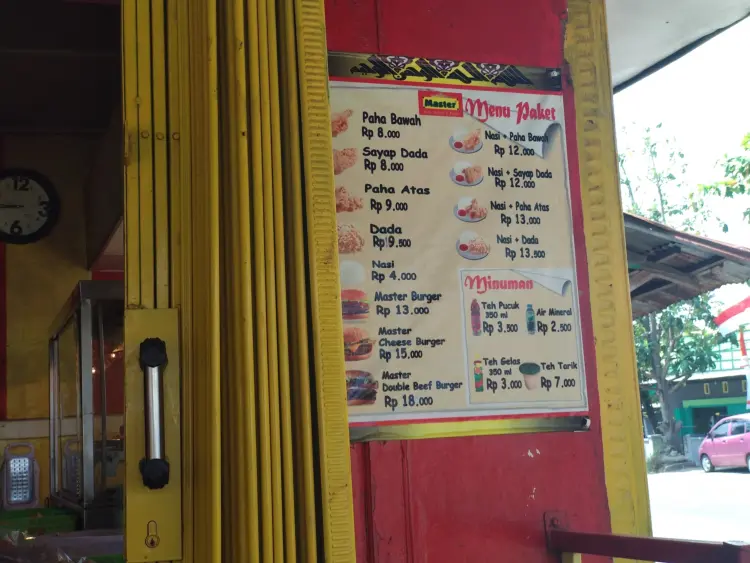 Master
Menu Paket
Paha Bawah
Rp 8.000
Sayap Dada
Rp 8.000
Paha Atas
Rp 9.000
Dada
Rp 9.500
Nasi
Rp 4.000
Master Burger
Rp 13.000
Master
Cheese Burger
Rp 15.000
Master
Double Beef Burger
Rp 18.000
Nasi + Paha Bawah
Rp 12.000
Nasi + Sayap Dada
Rp 12.000
Nasi + Paha Atas
Rp 13.000
Nasi + Dada
Rp 13.500
Minuman
Teh Pucuk
350 ml
Rp 3.500
Air Mineral
Rp 2.500
Teh Gelas
350 ml
Rp 3.000
Teh Tarik
Rp 7.000